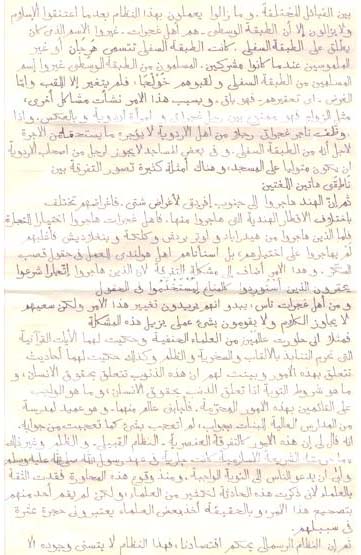 بين القبائل المختلفة. وما زالوا يعملون بهذا النظام بعدما اعتنقوا الإسلام
ولا يزالون إلا أن الطبقة الوسطى - هم أهل غجرات - غيروا الاسم الذي كان
يطلق على الطبقة السفلى. كانت الطبقة السفلى تتسمى هرجان أو غير
الملموسين عندما كانوا مشركين. المسلمون من الطبقة الوسطى غيروا إسم
المسلمين من الطبقة السفلى و لقبوهم فلم يتغير إلا اللقب وأما
الغرض - أي تحقيرهم - فهو باق. و بسبب هذا الأمر نشأت مشاكل أخرى،
مثل الزواج فهو ممنوع بين رجل غجراتي و امرأة أردوية و بالعكس. وإذا
وظف تاجر غجراتي رجلا من أهل الأردوية لا يؤجره ما يستحقه من الأجرة
لأجل أنه من الطبقة السفلى. و في بعض المساجد لا يجوز لرجل من أصحاب الأردوية
أن يكون متوليا على المسجد. و هناك أمثلة كثيرة تصور التفرقة بين
ناطقي هاتين اللغتين
ثم إن الهند هاجروا إلى جنوب إفريقي لأغراض شتى. فأغراضهم تختلف
باختلاف الأقطار الهندية التي هاجروا منها. فأهل غجرات هاجروا اختيارا للتجارة
وأما الذين هاجروا من حيدراباد و اوتر بردش و كلكتة و بنغلاديش فأغلبهم
لم يهاجروا على اختيارهم بل استأجرهم أهل هولندي للعمل في حقول قصب
السكر. و هذا الأمر أضاف إلى مشكلة التفرقة لأن الذين هاجروا للتجارة شرعوا
يحقرون الذين استوردوا كالمتاع ليستخدموا في الحقول
و من أهل غجرات ناس، يبدو أنهم يريدون تغيير هذا الأمر ولكن سعيهم
لا يجاوز الكلام ولا يقومون بشيء عملي يزيل هذه المشكلة
فمثلا أني حاورت عالمين من العلماء الحنفية و حكيت لهما الآيات القرآنية
التي تحرم التنابذ بالألقاب والسخرية و الظلم وكذلك حكيت لهما أحاديث
تتعلق بهذه الأمور و بينت لهم أن هذه الذنوب تتعلق بحقوق الإنسان، و
ما هو شروط التوبة إذا تعلق الذنب بحقوق الإنسان، و ما هو الواجب
على القائمين بهذه الأمور المحرمة. فأجابني عالم منهما، و هو عميد لمدرسة
من المدارس العالية للبنات بجواب، لم أتعجب بشيء كما تعجبت من جوابه.
إنه قال لي إن هذه الأمور كالتفرقة العنصرية - النظام القبيلي - و الظلم وغير ذلك
الشريعة الإسلامية كانت جارية في عهد رسول الله صلى الله عليه وسلم
وأنى أن يدعو الناس إلى التوبة الواجبة. ومنذ وقوع هذه المحاورة فقدت الثقة
بالعلماء لأني ذكرت هذه الحادثة لكثير من العلماء، ولكن لم يقم أحد منهم
بتصحيح هذا الأمر، و بالحقيقة أخذ بعض العلماء يعتبروني حجرة عثرة
في سبيلهم.
ثم إن النظام الرسمالي يحكم اقتصادنا، فهذا النظام لا يتسنى وجوده إلا